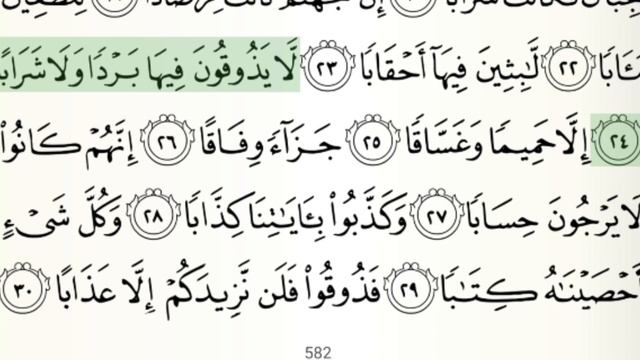 مَـَٔابًا ٢٢ لَّٰبِثِينَ فِيهَآ أَحْقَابًا ٢٣ لَّا يَذُوقُونَ فِيهَا بَرْدًا وَلَا شَرَابًا
٢٤ إِلَّا حَمِيمًا وَغَسَّاقًا ٢٥ جَزَآءً وِفَاقًا ٢٦ إِنَّهُمْ كَانُوا۟
لَا يَرْجُونَ حِسَابًا ٢٧ وَكَذَّبُوا۟ بِـَٔايَٰتِنَا كِذَّابًا ٢٨ وَكُلَّ شَىْءٍ
أَحْصَيْنَٰهُ كِتَٰبًا ٢٩ فَذُوقُوا۟ فَلَن نَّزِيدَكُمْ إِلَّا عَذَابًا ٣٠
582